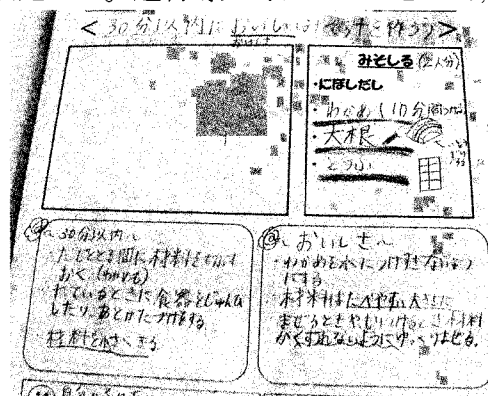 ＜30分以内においしいみそ汁を作ろう＞
みそしる(2人分)
・にぼしだし
・わかめ(10分間
・大根
・とうふ
～30分以内～
・だしをとる間に材料を切って
おく(わかめも)
にているときに食器をじゅんび
したり、あとかたづけをする
材料を小さくする
～おいしさ～
・わかめを水につけすぎないよう
にする
・材料はたべやすい大きさに
まぜるときやもりつけるとき材料
がくずれないようにゆっくりまぜる。